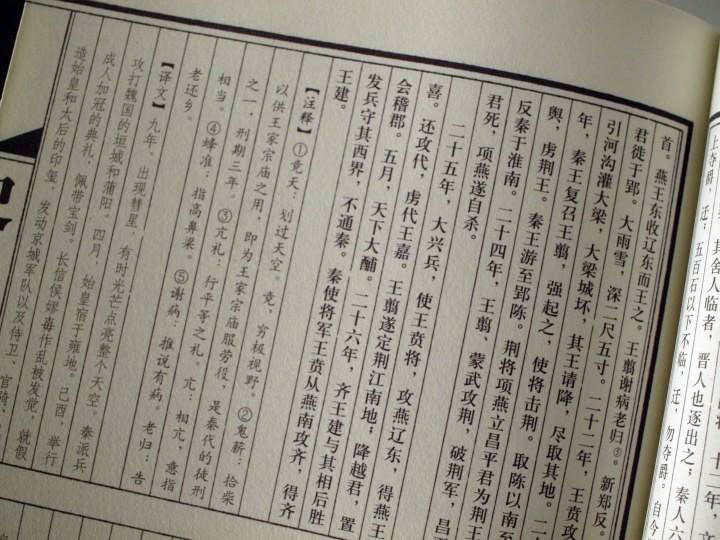 十二年，文
其舍人临者，晋人也逐出之；秦人六
上夺爵，迁；五百石以下不临，迁，勿夺爵。自今
首。燕王东收辽东而王之。王翦谢病老归①。新郑反。
君徙于郢。大雨雪，深二尺五寸。二十二年，王贲攻
引河沟灌大梁，大梁城坏，其王请降，尽取其地。二
年，秦王复召王翦，强起之，使将击荆。取陈以南至
舆，虏荆王。秦王游至郢陈。荆将项燕立昌平君为荆王
反秦于淮南。二十四年，王翦、蒙武攻荆，破荆军，昌
君死，项燕遂自杀。
二十五年，大兴兵，使王贲将，攻燕辽东，得燕王
喜。还攻代，虏代王嘉。王翦遂定荆江南地；降越君，置
会稽郡。五月，天下大酺。二十六年，齐王建与其相后胜
发兵守其西界，不通秦。秦使将军王贲从燕南攻齐，得齐
王建。
【注释】①竟天：划过天空。竟，穷极视野。②鬼薪：拾柴
以供王家宗庙之用，即为王家宗庙服劳役，是秦代的徒刑
之一，刑期三年。③亢礼：行平等之礼。亢：相亢，意指
相当。④蜂准：指高鼻梁。⑤谢病：推说有病。老归：告
老还乡。
【译文】九年，出现彗星，有时光芒点亮整个天空。秦派兵
攻打魏国的垣城和蒲阳。四月，始皇宿于雍地。己酉，举行
成人加冠的典礼，佩带宝剑。长信侯嫪毐作乱被发觉，就假
造始皇和太后的印玺，发动京城军队以及侍卫、官骑、